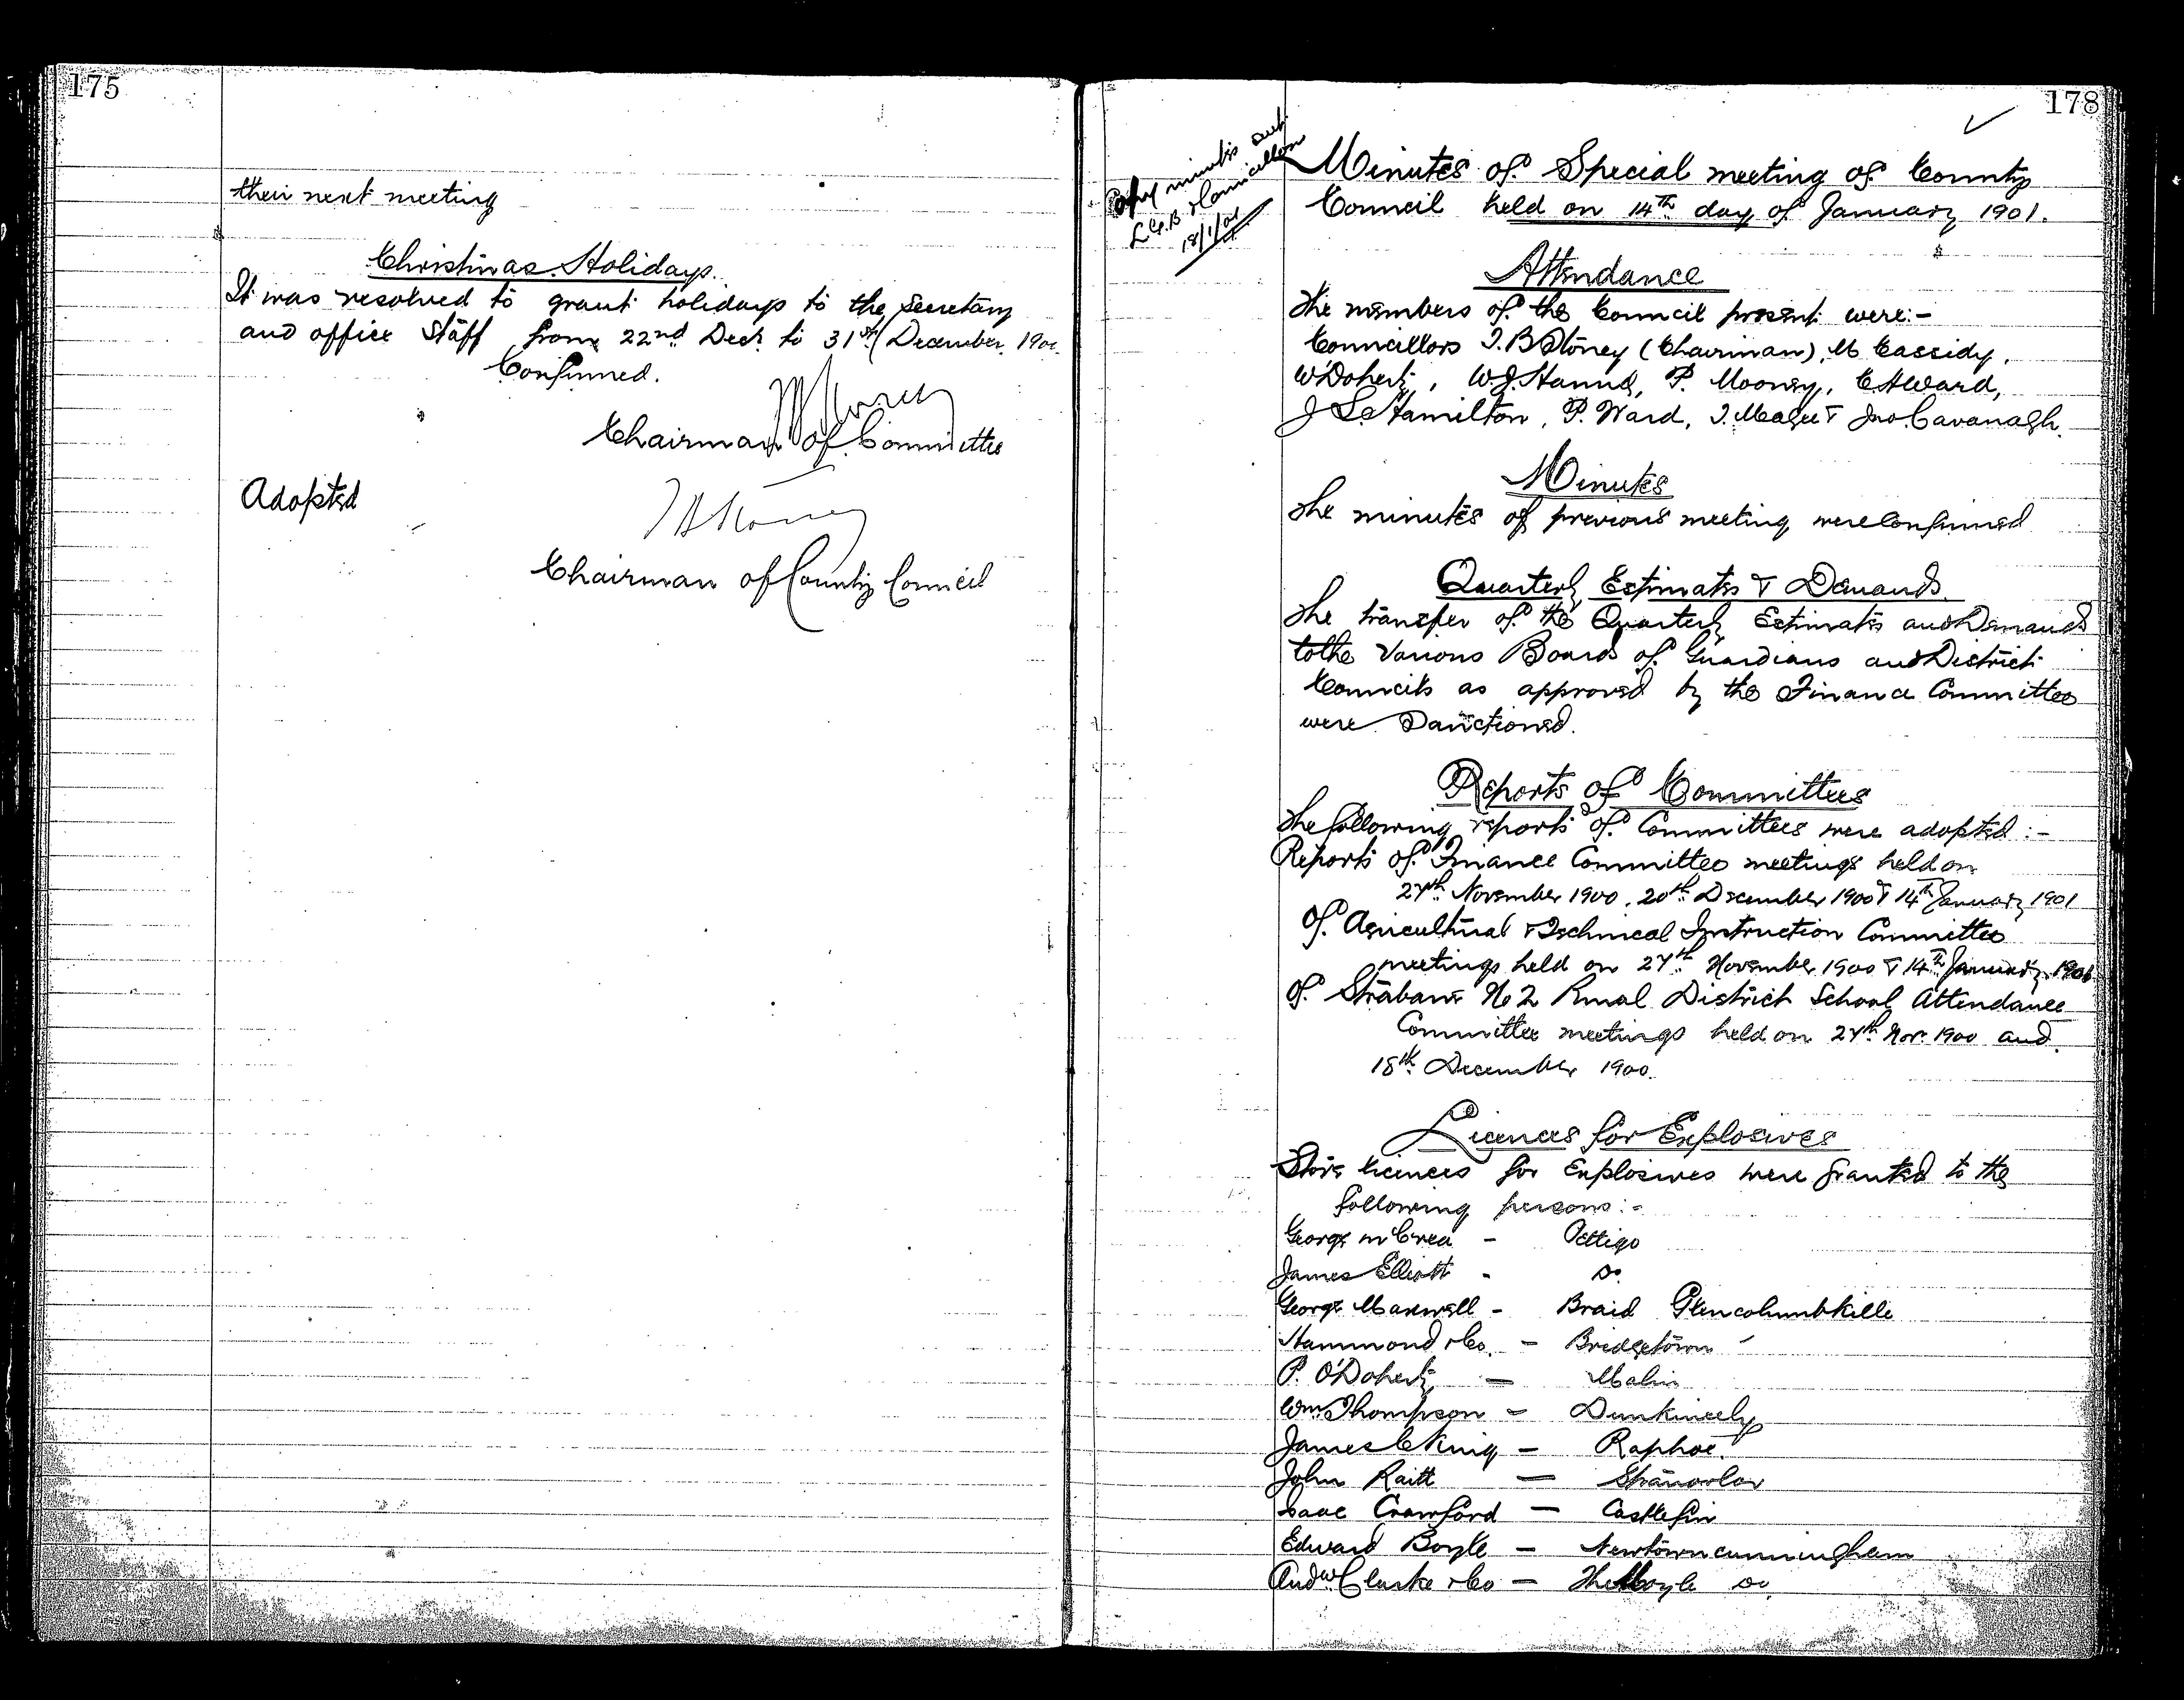 175
their next meeting
Christmas Holidays.
It was resolved to grant holidays to the secretary
and office staff from 22nd Decr. to 31st December. 190
Confirmed.
Chairman of Committee
Adopted
Chairman of County Council
178
Copy minutes sent
L.G.B & Councillors
18/1/01
Minutes of Special meeting of County
Council held on 14th day of January 1901.
Attendance
The members of the Council present were:-
Councillors T. B Stoney (Chairman), M Cassidy,
W Doherty, W. J. Hanna, P. Mooney, E A Ward,
J S Hamilton, P. Ward, T. Magee & Jno. Cavanagh.
Minutes
The minutes of previous meeting were confirmed
Quarterly Estimates & Demands.
The transfer of the Quarterly Estimates and Demands
to the various Boards of Guardians and District
Councils as approved by the Finance Committee
were Sanctioned.
Reports of Committees
The following reports of Committees were adopted :-
Reports of Finance Committee meetings held on
27th November 1900, 20th December 1900 & 14th January 1901
Of Agricultural & Technical Instruction Committee
meetings held on 27th November 1900 & 14th January 1901
Of Strabane No 2 Rural District School Attendance
Committee meetings held on 27th Nov. 1900 and
18th December 1900.
Licences for Explosives
Store licences for Explosives were granted to the
following persons:-
George McCrea - Pettigo
James Elliott - Do.
George Maxwell - Braid Glencolumbkille
Hammond & Co. - Bridgetown
P. O'Doherty - Malin
Wm. Thompson - Dunkineely
James C King - Raphoe.
John Raitt - Stranorlar
Isaac Crawford - Castlefin
Edward Boyle - Newtowncunningham
Andw Clarke & Co - The Moyle Do.